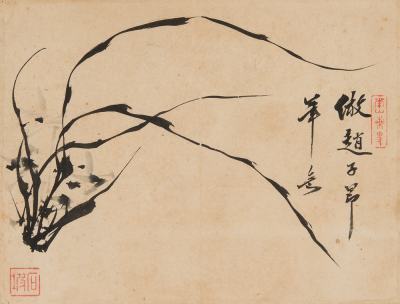 倣趙子昂
筆意